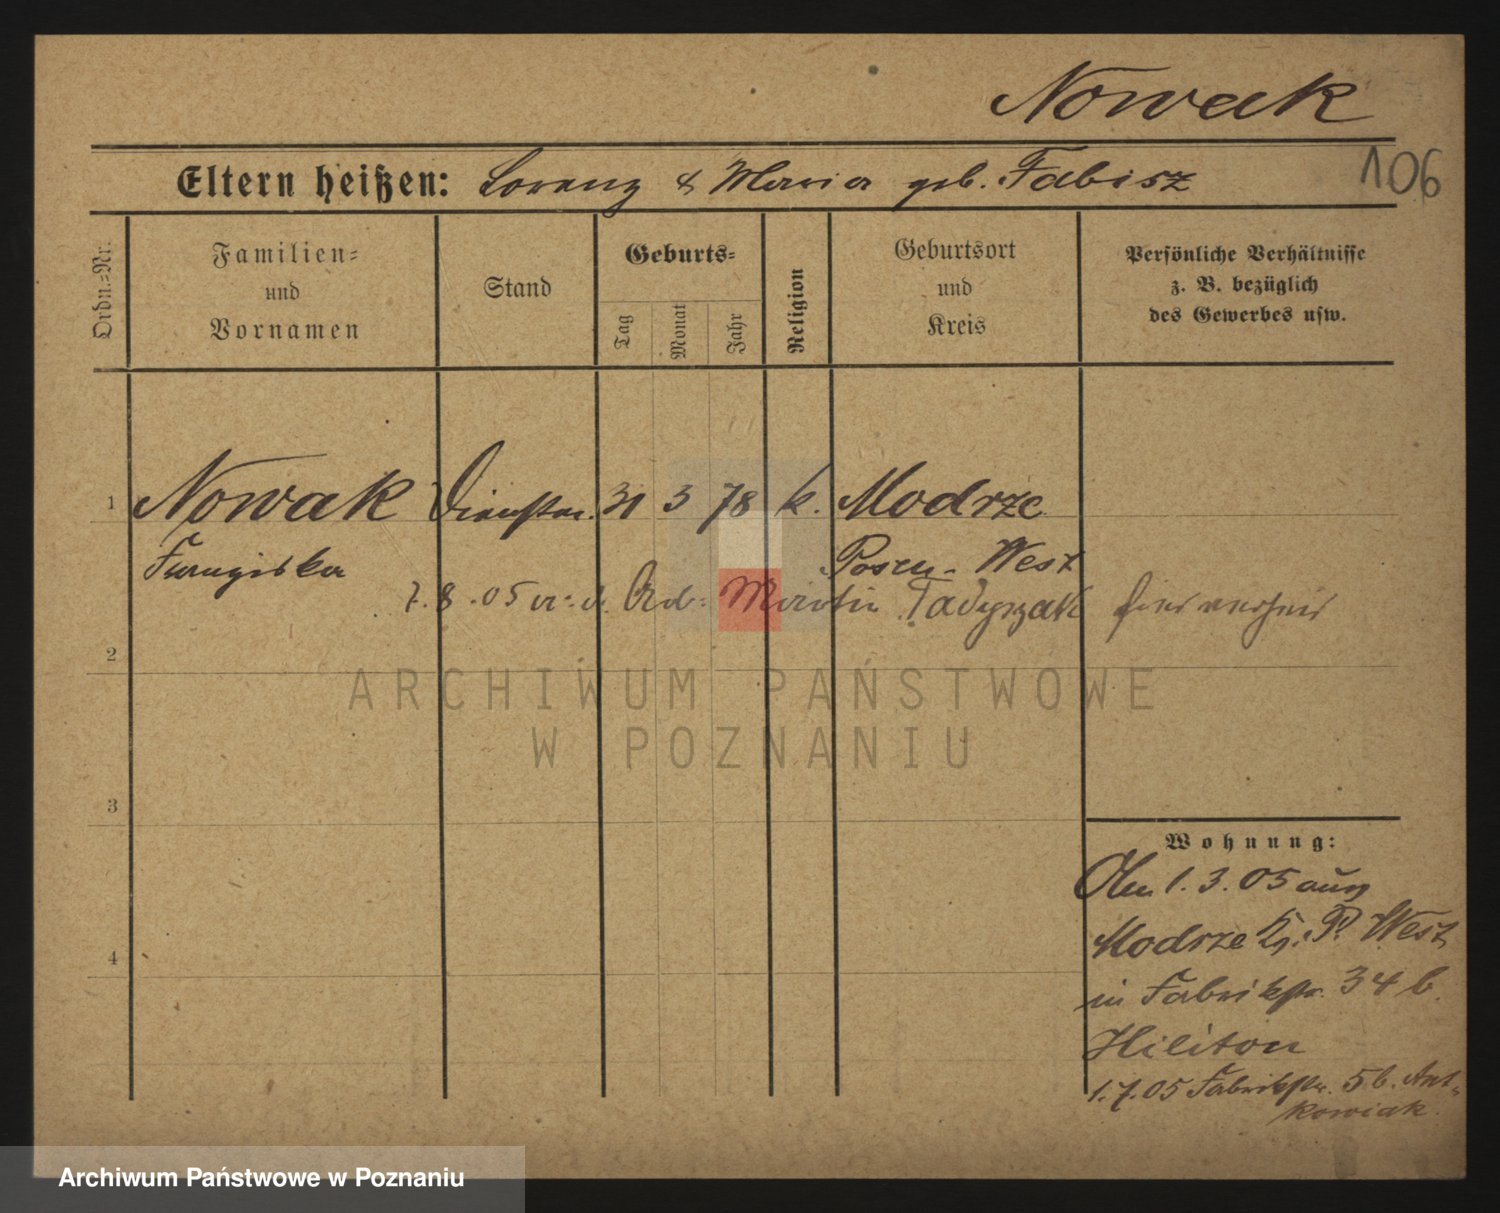 Nowak
106
Eltern heißen: Lorenz & Maria geb. Fabisz
Ordn.=Nr.
Familien=
und
Vornamen
Stand
Geburts=
Tag
Monat
Jahr
Religion
Geburtsort
und
Kreis
Persönliche Verhältnisse
z. B. bezüglich
des Gewerbes usw.
1 Nowak Dienstm. 31 3 78 k. Modrze
Franziska Posen-West
7.8.05 Arb: Martin hier verheir
2
ARCHIWUM PAŃSTWOWE
W POZNANIU
3
4
Wohnung:
1.3.05 aus
Modrze Kr. P. West
in Fabrikstr. 34 b.
Hiliton
1.7.05 Fabrikstr. 5b. Ant-
kowiak.
Archiwum Państwowe w Poznaniu